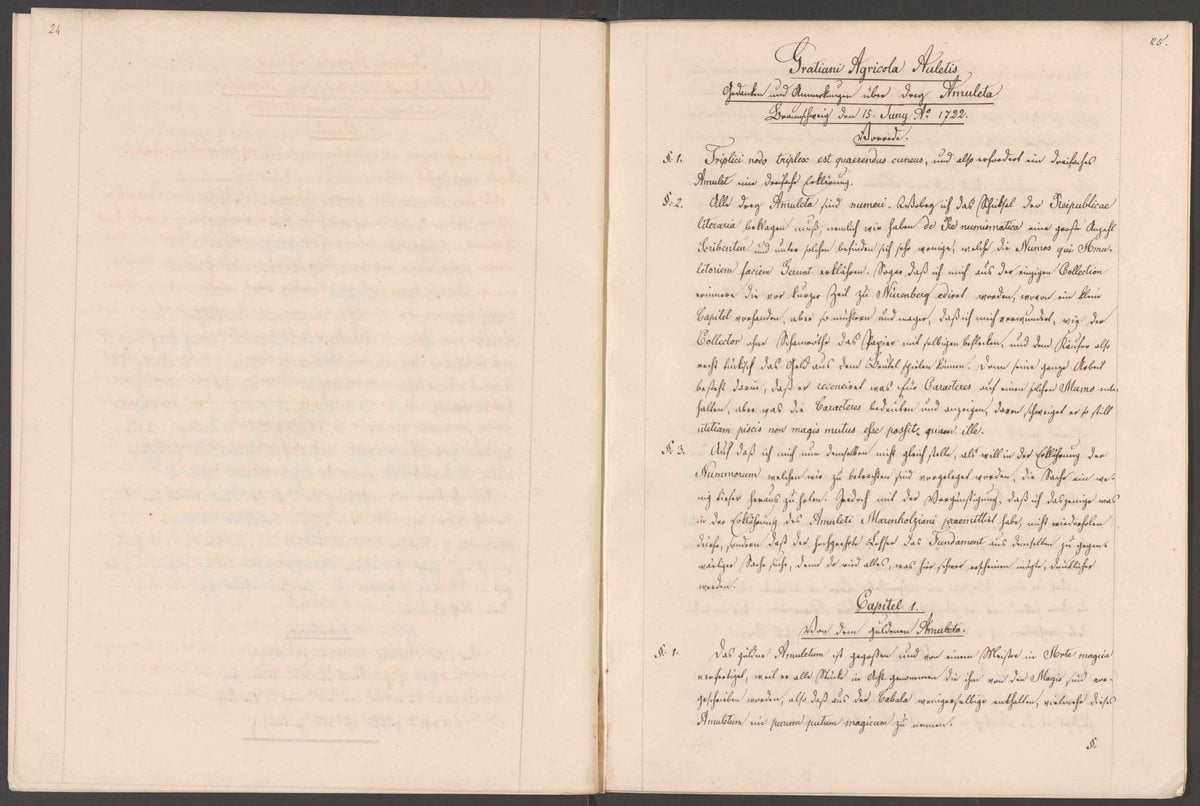 24
25.
Gratiani Agricola Auletis
Gedanken und Anmerkungen über drey Amuleta
Braunschweig den 15. Juny Aº 1722.
Vorrede.
§. 1. Triplici nodo triplex est quaerendus cuneus, und also erfordert ein dreifaches
Amulet eine dreifache Erklärung.
§. 2. Alle drey Amuleta sind numeri. ich das Schiksal der Reipublicae
literaria beklagen muß, nemlich wir haben de Re numismatica eine große Anzahl
Scribenten und unter solchen befinden sich sehr wenige, welche die Numos qui Amu-
letorum faciem Gerunt erklähren. Sogar daß ich mich aus der einzigen Collection
erinnere die vor kurzer Zeit zu Nürenberg ediret worden, wovon ein klein
Capitel vorhanden, aber so nüchtern und mager, daß ich mich verwundert, wie der
Collector ohne Schamröthe das Papier mit selbigen beflecken, und dem Käufer also
recht tückisch das Geld aus dem Beutel spielen können. Denn seine ganze Arbeit
besteht darin, daß er recenciret was für Caracteres auf einem solchen Numo ent-
halten, aber was die Caracteres bedeuten und anzeigen, davon schweiget er so still
utetiam piscis non magis mutus esse possit, quam ille.
§. 3. Auf daß ich mich nun demselben nicht gleich stelle, als will in der Erklährung der
Nummorum welchen wir zu betrachten sind vorgeleget worden, die Sache ein we-
nig tiefer heraus zu holen. Jedoch mit der Vergünstigung, daß ich dasjenige was
in der Erklährung des Amuleti Marenholziani praemittiret habe, nicht wiederholen
dürfe, sondern daß der hochgeehrte Leser das Fundament aus demselben zu gegen-
wärtiger Sache suche, denn da wird alles, was hier schwer erscheinen mögte, deutlicher
werden.
Capitel 1.
Von dem guldenen Amuleto.
§. 1. Das güldne Amuletum ist gegossen und von einem Meister in Arte magica
verfertiget, weil er alle Stück in Acht genommen die ihm von den Magis sind vor-
geschrieben worden, also daß aus der Cabala wenigerselbige enthalten, vielmehr dieses
Amuletum ein purum putum magicum zu nennen.
§.